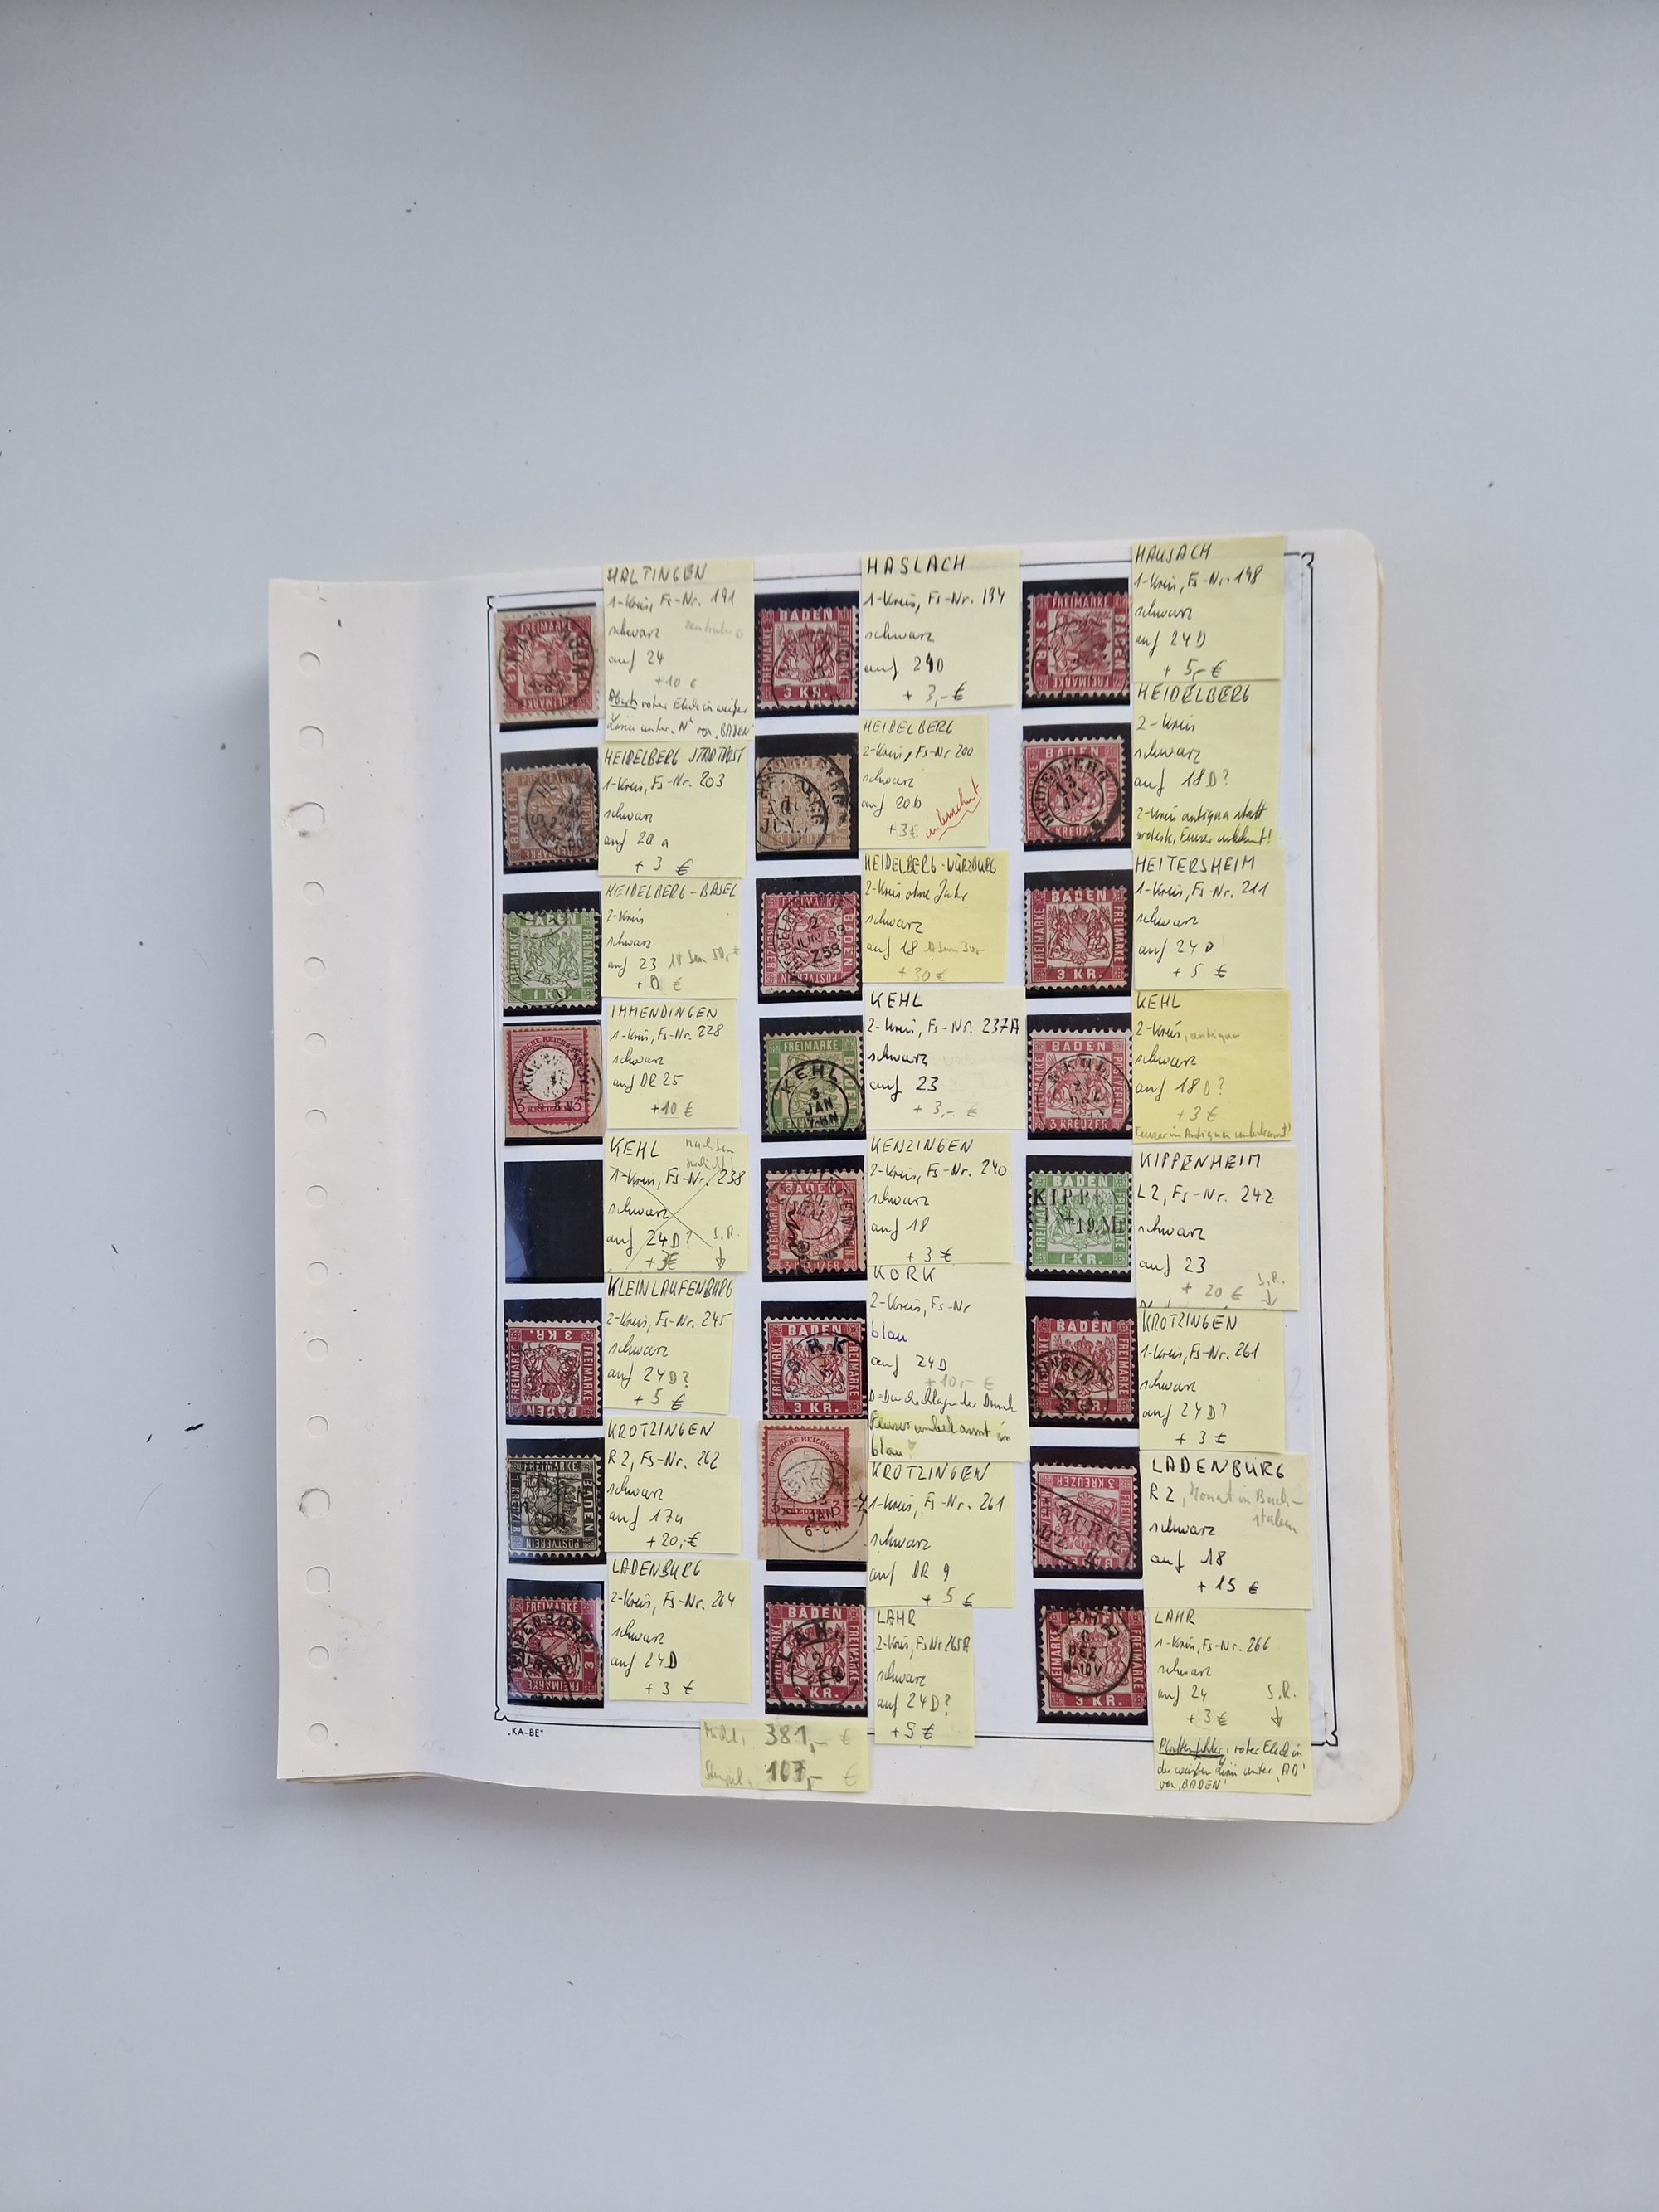 HALTINGEN
1-Kreis, Fs-Nr. 191
schwarz
auf 24
+10 €
roter Fleck in weißer
Linie unter „N" von „BADEN"
HASLACH
1-Kreis, Fs-Nr. 194
schwarz
auf 24D
+ 3,- €
HAUSACH
1-Kreis, Fs-Nr. 198
schwarz
auf 24 D
+ 5,- €
HEIDELBERG STADTPOST
1-Kreis, Fs-Nr. 203
schwarz
auf 20 a
+ 3 €
HEIDELBERG
2-Kreis, Fs-Nr 200
schwarz
auf 20b
+3€
HEIDELBERG
2-Kreis
schwarz
auf 18D?
2-Kreis antiqua statt
grotesk, Feuser unbekannt!
HEIDELBERG-BASEL
2-Kreis
schwarz
auf 23
+ 0 €
HEIDELBERG-WÜRZBURG
2-Kreis ohne Jahr
schwarz
auf 18
+ 30 €
HEITERSHEIM
1-Kreis, Fs-Nr. 211
schwarz
auf 24 D
+ 5 €
IMMENDINGEN
1-Kreis, Fs-Nr. 228
schwarz
auf DR 25
+10 €
KEHL
2-Kreis, Fs-Nr. 237A
schwarz
auf 23
+ 3,- €
KEHL
2-Kreis, antiqua
schwarz
auf 18D?
+3 €
Feuser in Antiqua unbekannt!
KEHL
1-Kreis, Fs-Nr. 238
schwarz
auf 24D? S.R.
+ 3€
KENZINGEN
2-Kreis, Fs-Nr. 240
schwarz
auf 18
+ 3 €
KIPPENHEIM
L2, Fs-Nr. 242
schwarz
auf 23
+ 20 € S.R.
KLEINLAUFENBURG
2-Kreis, Fs-Nr. 245
schwarz
auf 24D?
+ 5 €
KORK
2-Kreis, Fs-Nr
blau
auf 24D
+10,- €
D=Durchschlagender Druck
Feuser unbekannt in
blau
KROTZINGEN
1-Kreis, Fs-Nr. 261
schwarz
auf 24D?
+ 3 €
KROTZINGEN
R2, Fs-Nr. 262
schwarz
auf 17a
+20,- €
KROTZINGEN
1-Kreis, Fs-Nr. 261
schwarz
auf DR 9
+ 5 €
LADENBURG
R2, Monat in Buch-
staben
schwarz
auf 18
+ 15 €
LADENBURG
2-Kreis, Fs-Nr. 264
schwarz
auf 24D
+ 3 €
LAHR
2-Kreis, Fs Nr 265B
schwarz
auf 24D?
+5 €
LAHR
1-Kreis, Fs-Nr. 266
schwarz
auf 24 S.R.
+3 €
Plattenfehler: roter Fleck in
der weißen Linie unter „AD"
von „BADEN"
„KA-BE"
381,- €
107,- €